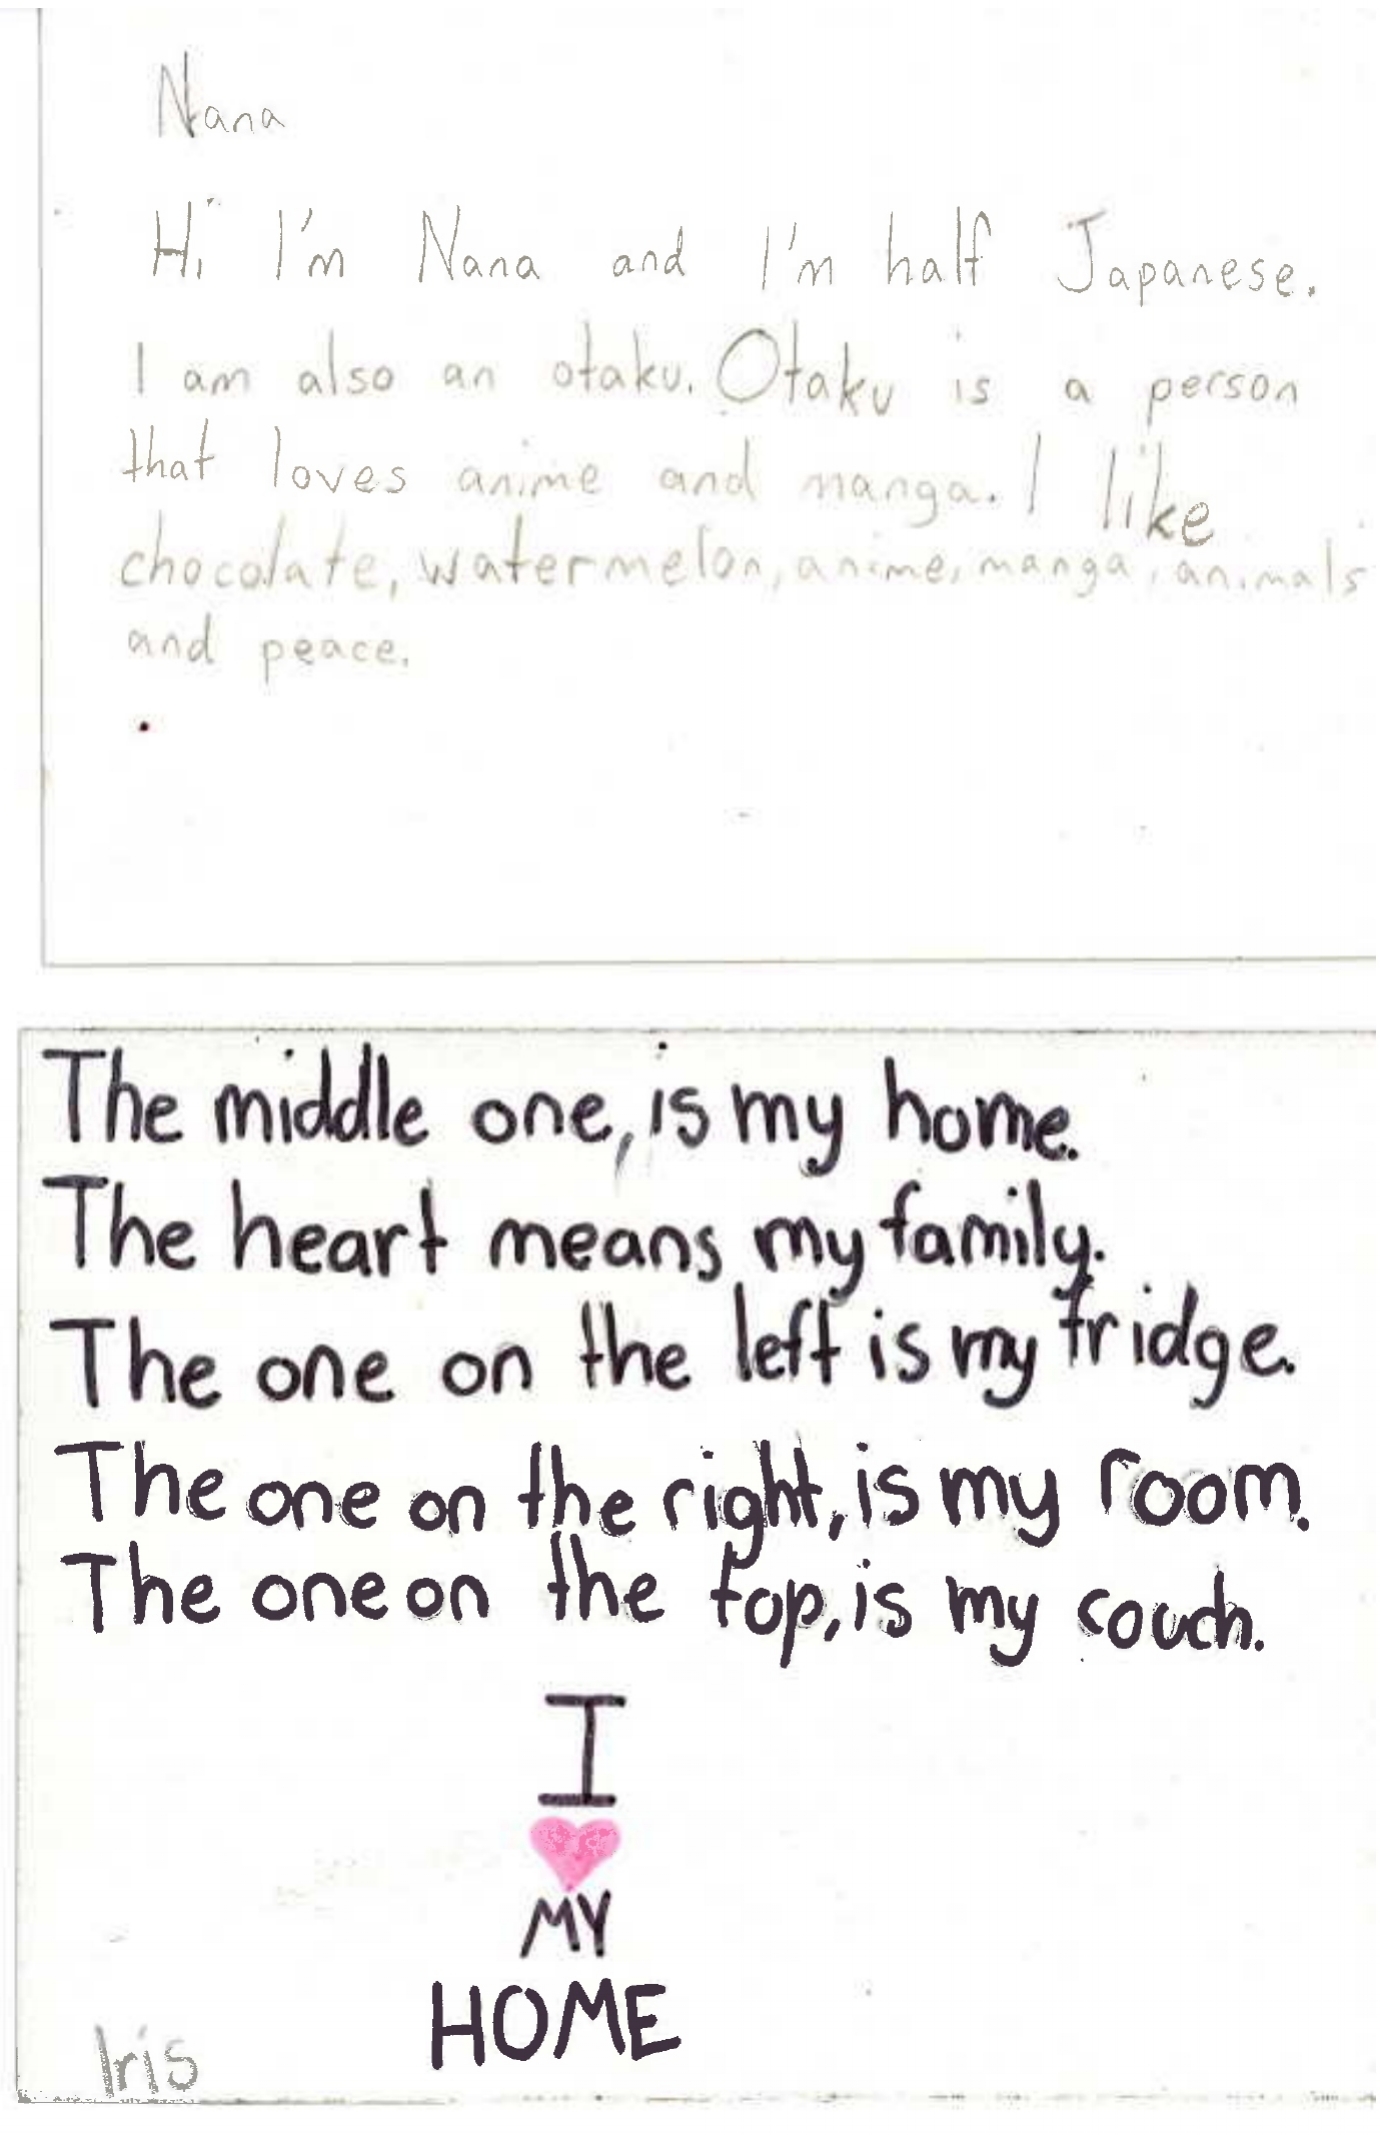 Nana
Hi I'm Nana and I'm half Japanese.
I am also an otaku. Otaku is a person
that loves anime and manga. I like
chocolate, watermelon, anime, manga, animals
and peace.
The middle one, is my home.
The heart means my family.
The one on the left is my fridge.
The one on the right, is my room.
The one on the top, is my couch.
I
MY
HOME
Iris